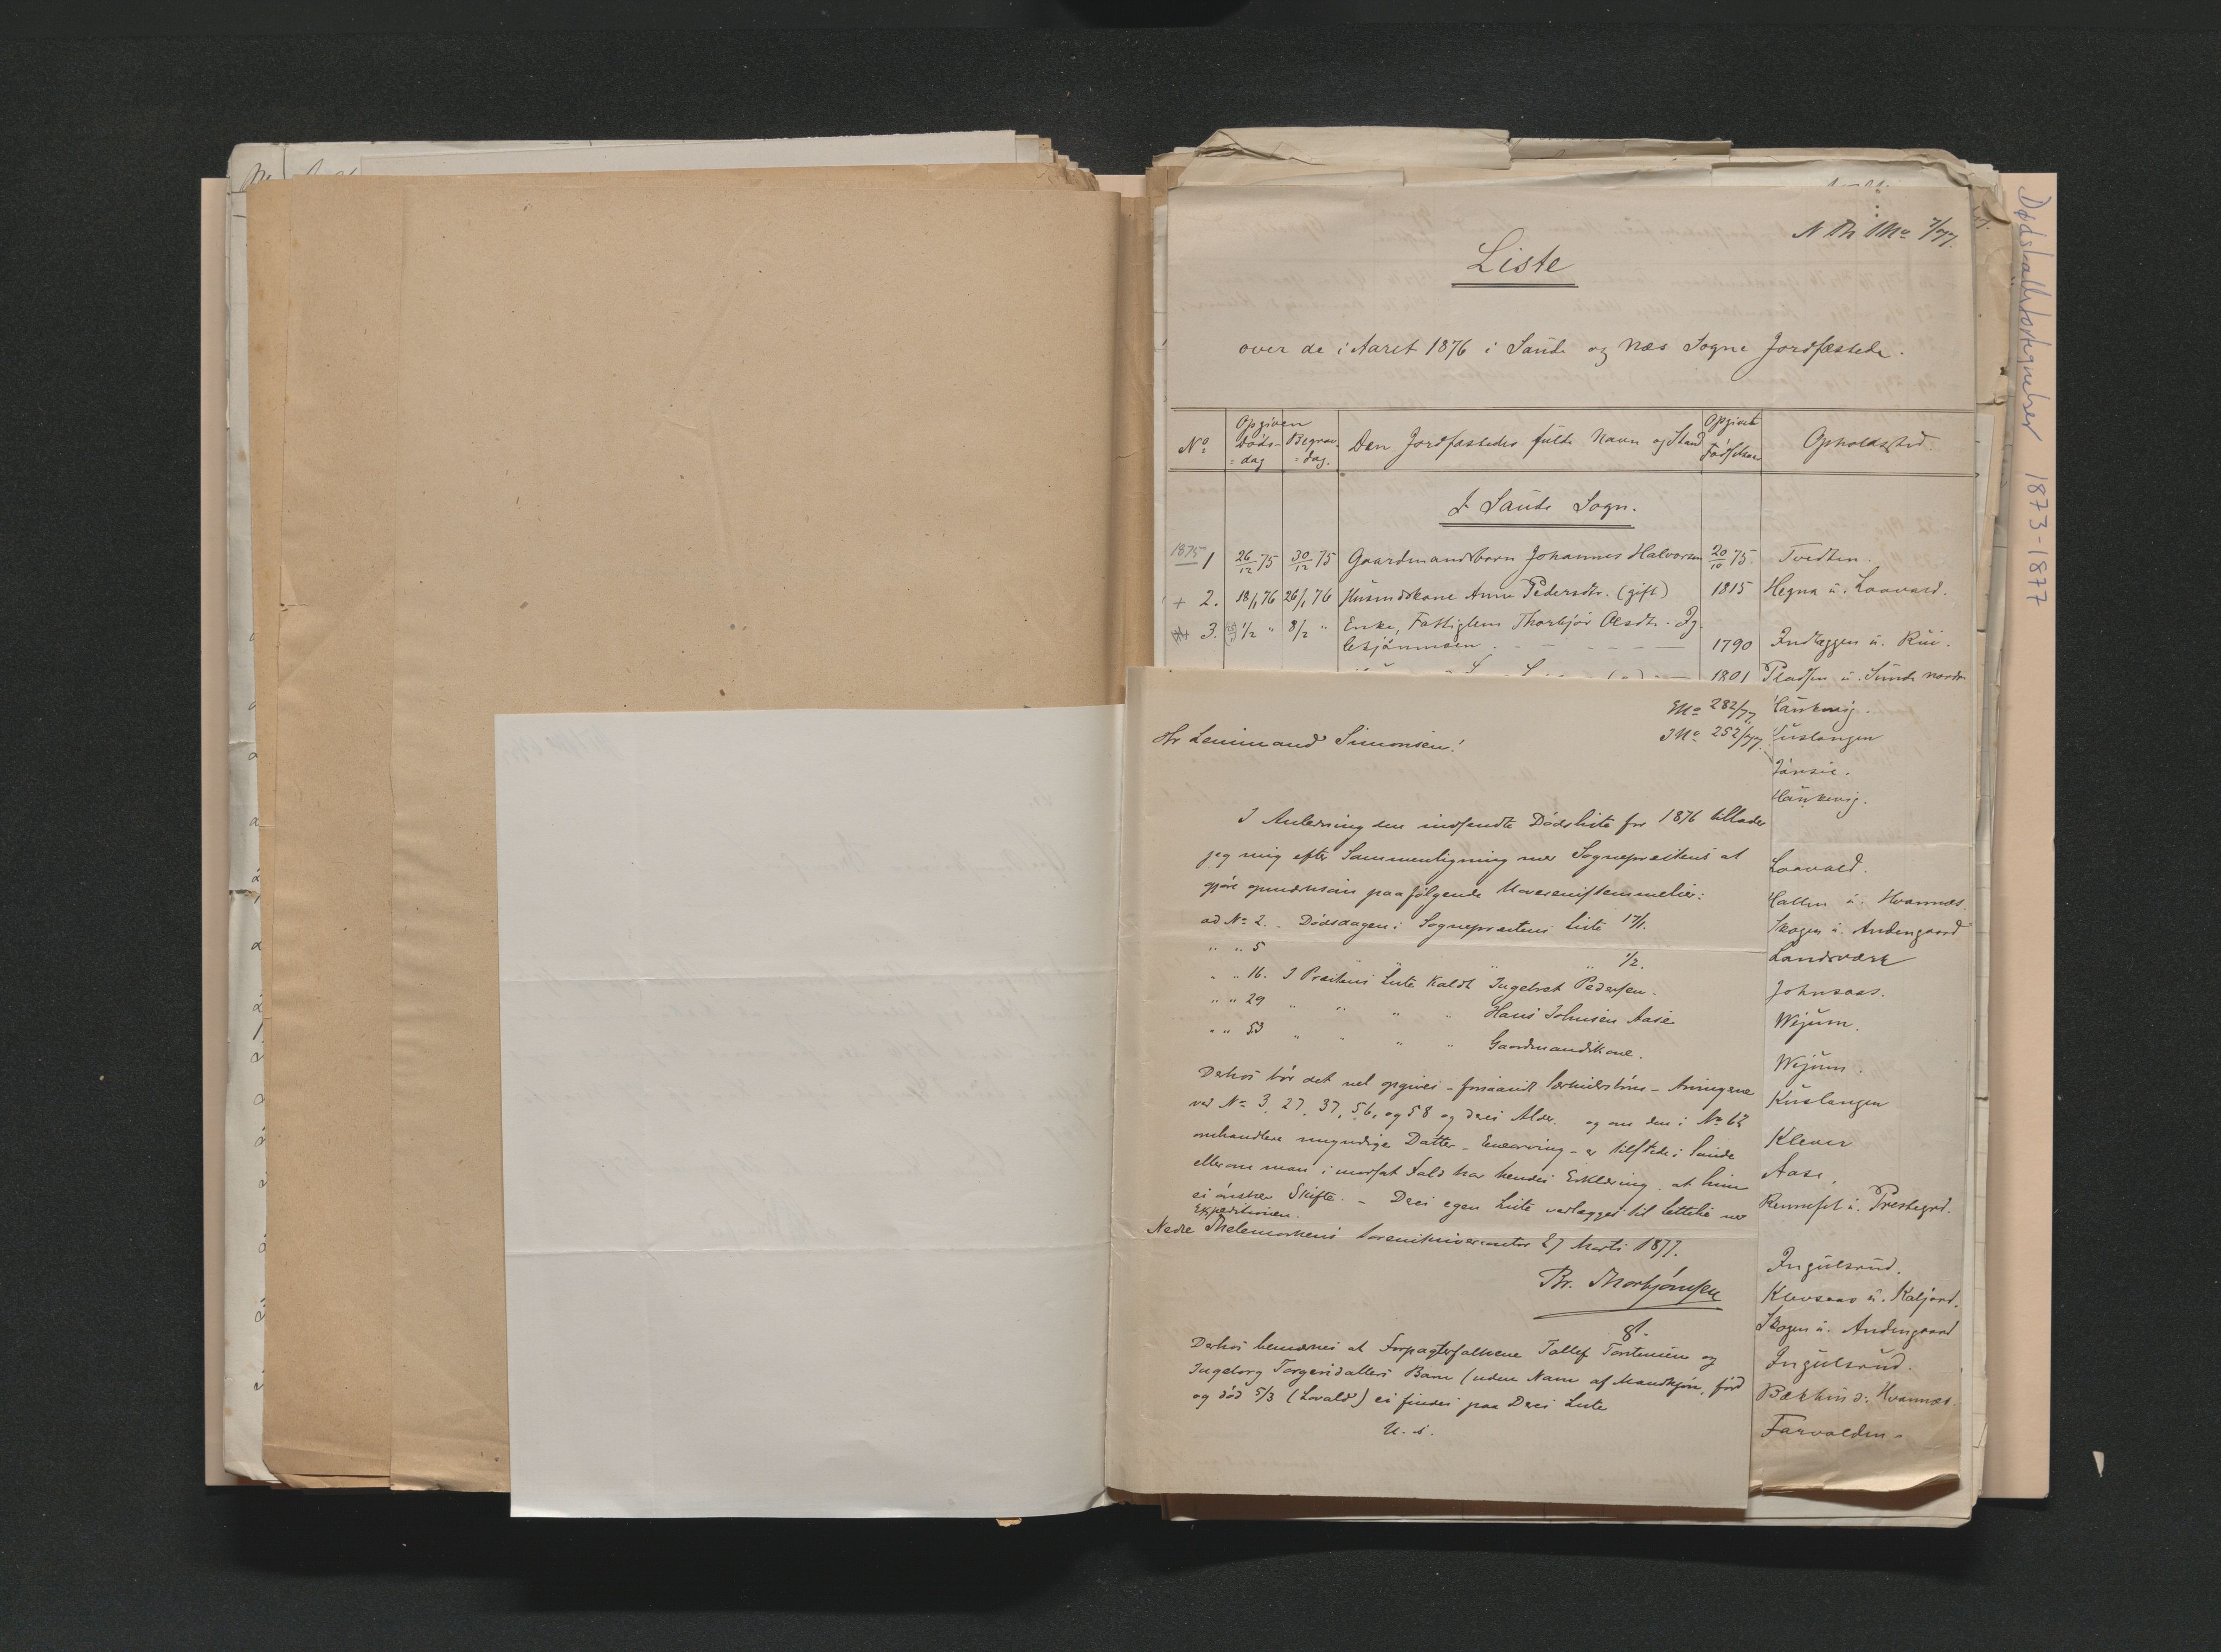 Dødsfallsfortegnelser 1873-1877
N Th No 7/77.
Liste
over de i Aaret 1876 i Saude og Næs Sogne Jordfæstede.
No
Opgiven
Døds-
=dag
Begrav.
=dag.
Den Jordfæstedes fulde Navn og Stand
Opgivet
Fødselsaar
Opholdssted.
I Saude Sogn.
1875 1 26/12 75 30/12 75 Gaardmandsbarn Johannes Halvorsen 20/10 75. Tvedten.
+ 2. 18/1 76 26/1 76 Husmdskone Anne Pedersdtr. (gift) 1815 Hegna u. Laavard.
3. 1/2 " 8/2 " Enke, Fattiglem Thorbjør Olsdtr. Ig-
lesjønmoen. - - - - - 1790 Indlæggen u. Rui.
1801 Pladsen u. Sunde nordre
Haukevig.
Kuslangen
Haukevig.
Laavald.
Hallen u. Hvamnæs.
Skogen u. Andengaard
Landsværk
Johnsaas.
Wejum.
Wejum.
Kuslangen
Klever
Aase.
Rennefet u. Prestegrd.
Ingulsrud.
Klevsaas u. Kaljord.
Skogen u. Andengaard
Ingulsrud.
Bækhus u. Hvamnæs.
Farvolden.
ENo 282/77
JNo 252/77
Hr Lensmand Simonsen!
I Anledning den indsendte Dødsliste for 1876 tillader
jeg mig efter Sammenligning med Sognepræstens at
gjøre opmærksom paa følgende Uoverensstemmelser:
ad No 2. - Dødsdagen i Sognepræstens Liste 17/1.
" " 5 " " 1/2.
" " 16. I Præstens Liste kaldt Ingebret Pedersen.
" " 29 " " " " Hans Johnsen Aase
" " 53 " " " " Gaardmandskone.
Derhos bør det vel opgives - forsaavidt - Arvingerne
ved No 3, 27, 37, 56, og 58 og deres Alder. og om den i No 62
omhandlede umyndige Datter - Enearving - er tilstede i Saude
eller om man i modsat Fald har hendes Erklæring at hun
ei ønsker Skifte. - Deres egen Liste vedlægges til Lettelse ved
Expeditionen.
Nedre Thelemarkens Sorenskriverkontor 27 Marts 1877.
Br. Thorbjørnsen
Derhos bemærkes at Forpagterfolkene Tollef Torstensen og
Ingeborg Torgersdatters Barn (uden Navn af Mandkjøn, født
og død 5/3 (Lovald) ei findes paa Deres Liste
U. s.